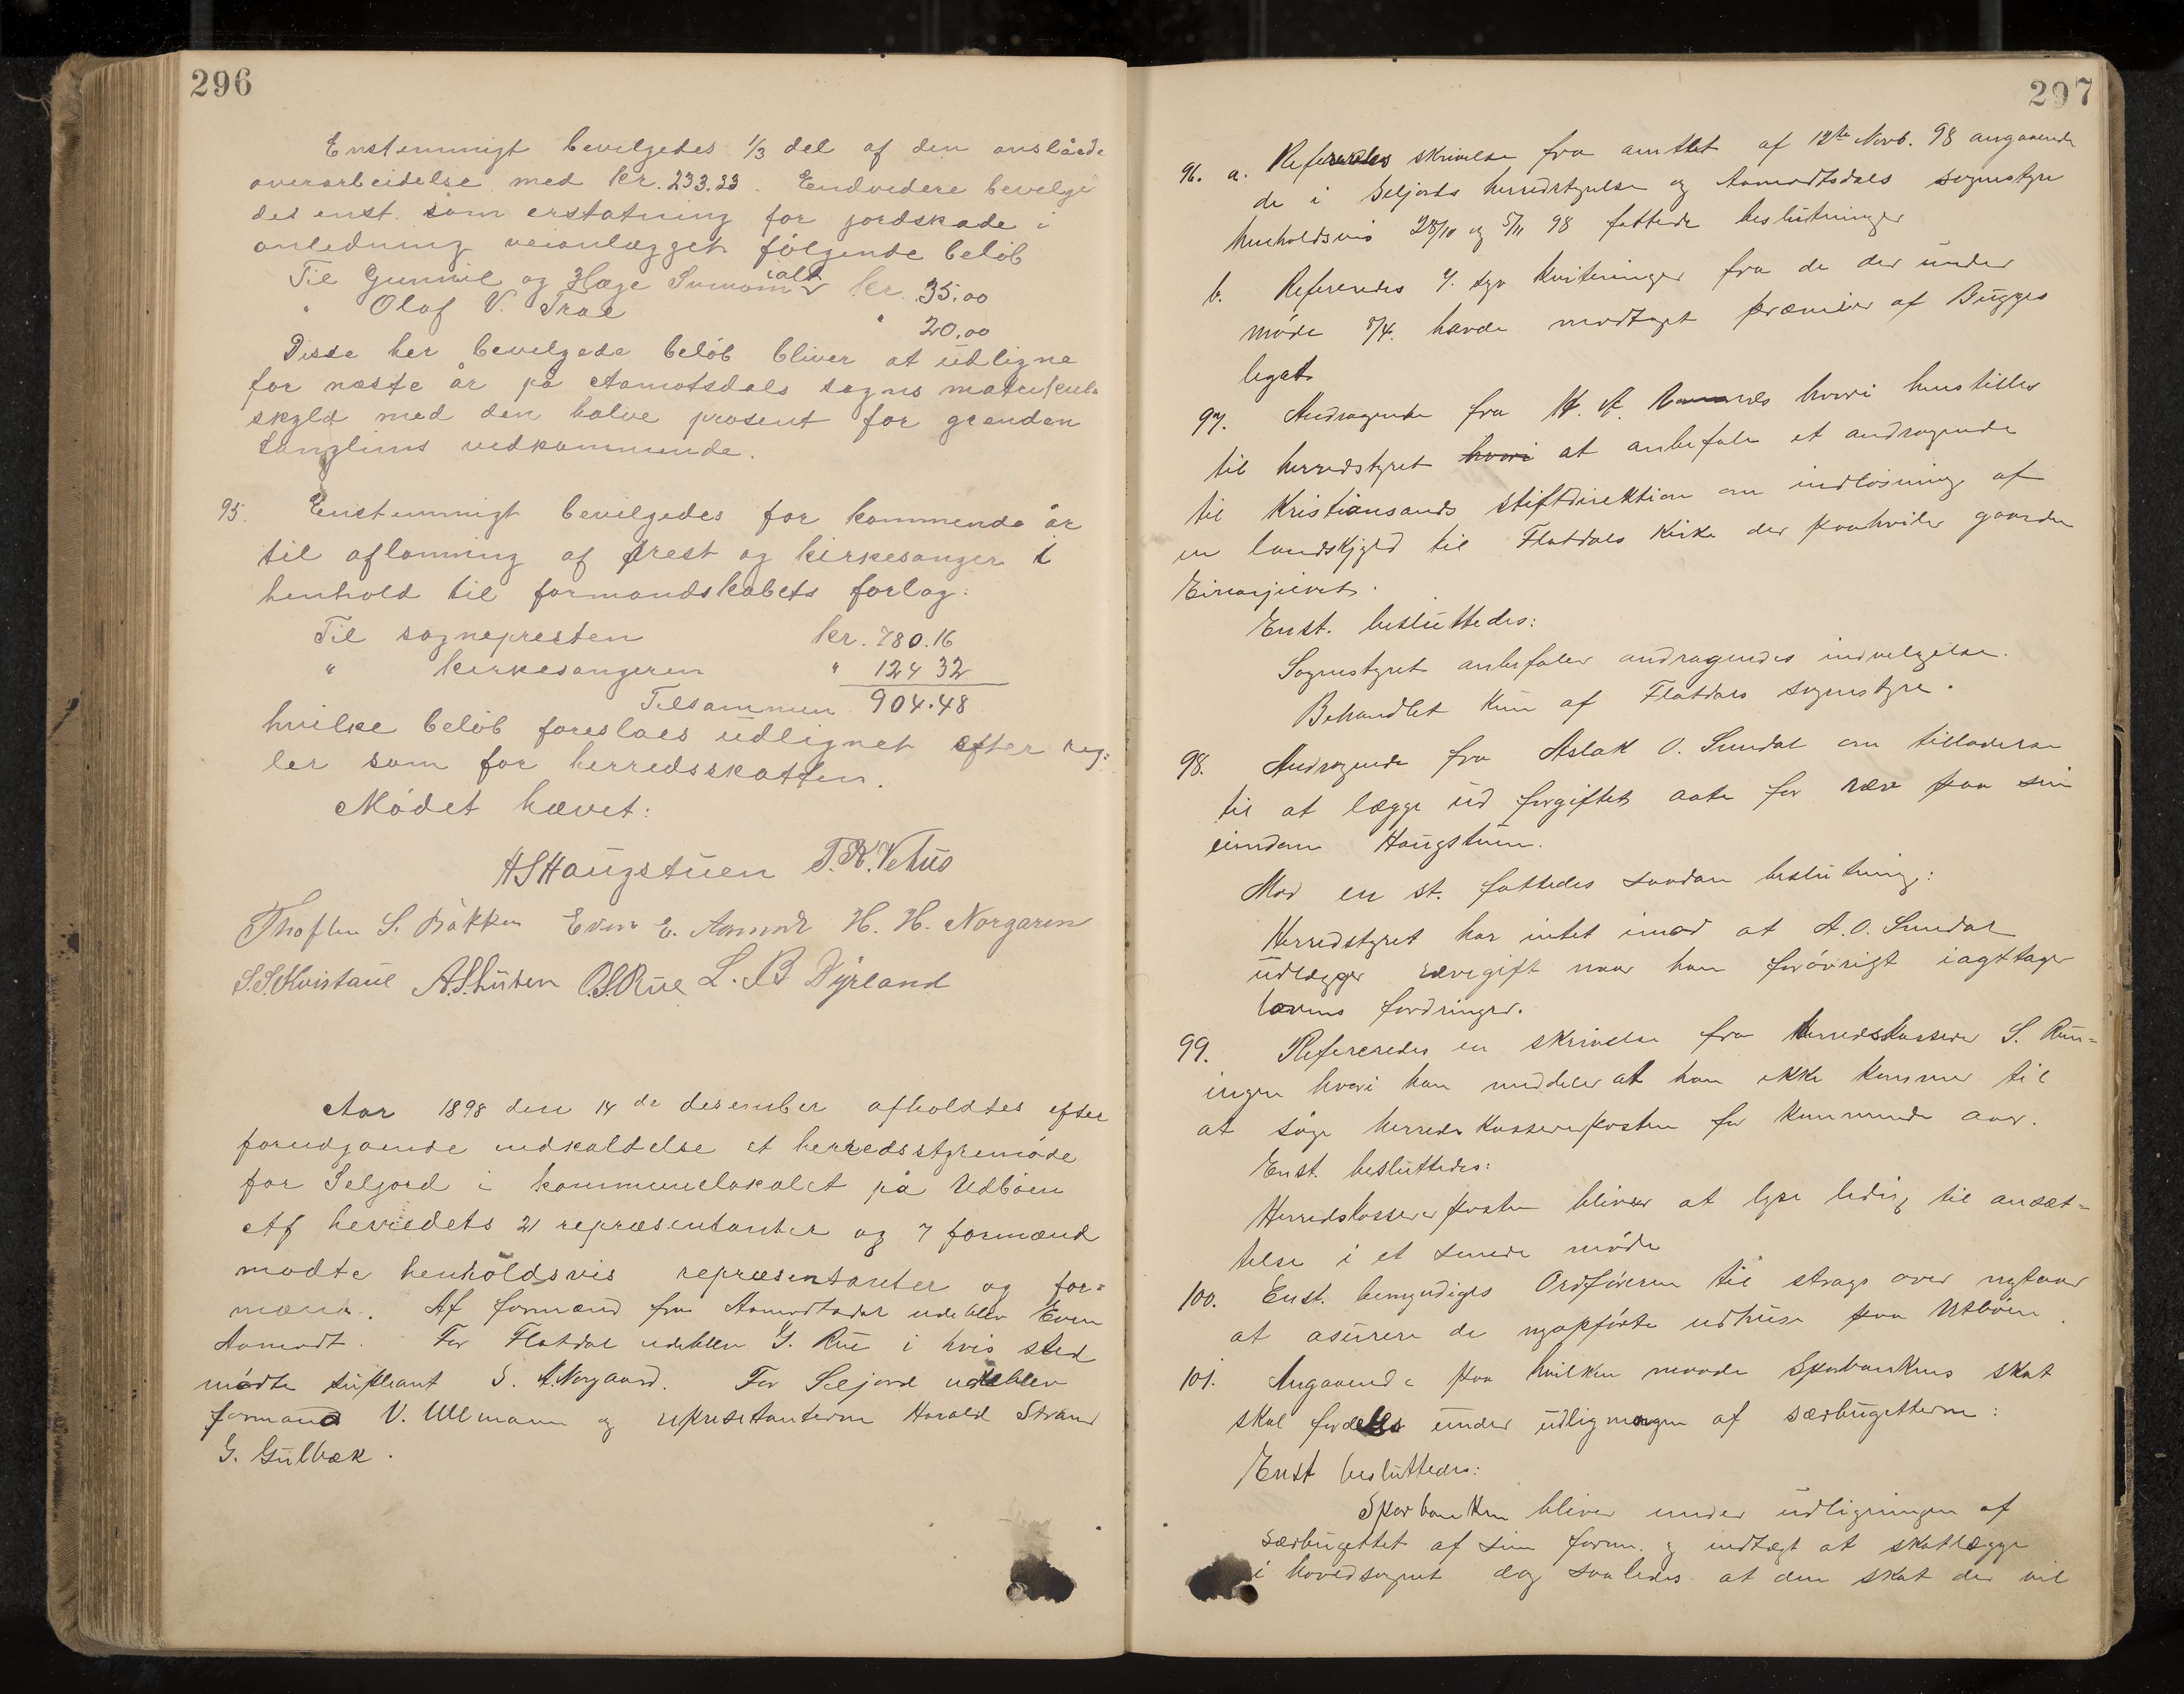 296
Enstemmigt bevilgedes 1/3 del af den anslåede
overarbeidelse med kr. 233.33. Endvidere bevilge
des enst. som erstatning for jordskade i
anledning veianlægget følgende beløb
Til Gunnil og Hæge ialt kr. 35.00
" Olaf V. Trae " 20.00
Disse her bevilgede beløb bliver at udligne
for næste år på Aamotsdals sogns matrikul
skyld med den halve prosent for grenden
Langlims vedkommende.
95. Enstemmigt bevilgedes for kommende år
til aflønning af prest og kirkesanger i
henhold til formandskabets forlag:
Til sognepresten kr. 780.16
" kirkesangeren " 124 32
Tilsammen 904.48
hvilke beløb foreslaes udlignet efter reg=
ler som for herredsskatten.
Mødet hævet:
HSHaugstuen T.K.Vehus
S. Bakken Even E. Aamodt H. H. Norgaren
S.S.Kvistaul A.S. O.S.Rue L. B Dyrland
Aar 1898 den 14 de desember afholdtes efter
foredgaaende indkaldelse et herredsstyremøde
for Seljord i kommunelokalet på Utbøen
Af herredets 21 repræsentanter og 7 formænd
mødte henholdsvis repræsentanter og for=
mænd. Af formænd fra Aamodtsdal udeblev Even
Aamodt. For Flatdal udeblev G. Rue i hvis sted
mødte supleant S. A. Norgaard. For Seljord udeblev
formand V. Ullmann og repræsetanterne Harald Strand
G. Gulbæk.
297
96. a. Refereredes skrivelse fra amtet af 12te Novb. 98 angaaende
de i Seljords herredstyrelse og Aamodtsdals sognestyre
henholdsvis 28/10 og 5/11 98 fattede beslutninger
b. Refereredes 7. syv kviteringer fra de der under
møde 8/4. havde modtaget præmier af Bugges
legat
97. Andragende fra H. A. hvori henstilles
til herredstyret hvori at anbefale et andragende
til Kristiansands stiftdirektion om indløsning af
en landskyld til Flatdals kirke der paahviler gaarden
Enst. besluttedes:
Sognestyret anbefaler andragendes indvelgelse.
Behandlet kun af Flatdals sognestyre.
98. Andragende fra Aslak O. Sundal om tilladelse
til at lægge ud forgiftet aate for ræve paa sin
eindom Haugstuen.
Mod en st. fattedes saadan beslutning:
Herredstyret har intet imod at A.O. Sundal
udlægger rævegift naar han forøvrigt iagttager
lovens fordringer.
99. Refereredes en skrivelse fra Herredskasserer S. Run=
ingen hvori han meddeler at han ikke kommer til
at søge herredskassererposten for kommende aar.
Enst. besluttedes:
Herredskassererposten bliver at lyse ledig til ansæt=
telse i et senere møde
100. Enst. bemyndiges Ordføreren til strags over nytaar
at asurere de nyopførte udhuse paa Utbøen.
101. Angaaende paa hvilken maade Sparbankens skat
skal fordeles under udligningen af særbugetterne:
Enst besluttedes:
Sparbanken bliver under udligningen af
særbugettet af sin form. og indtægt at skatlægge
i hovedsognet dog saaledes at den skat der vil